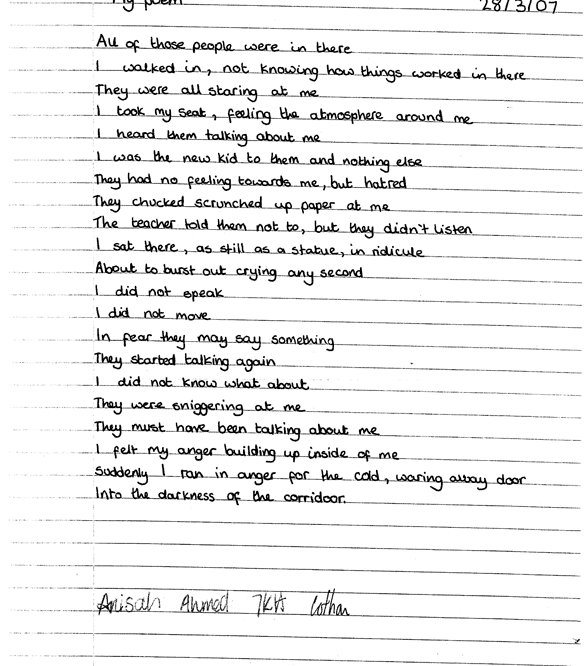 My poem 28/3/07
All of those people were in there
I walked in, not knowing how things worked in there
They were all staring at me
I took my seat, feeling the atmosphere around me
I heard them talking about me
I was the new kid to them and nothing else
They had no feeling towards me, but hatred
They chucked scrunched up paper at me
The teacher told them not to, but they didn't listen
I sat there, as still as a statue, in ridicule
About to burst out crying any second
I did not speak
I did not move
In fear they may say something
They started talking again
I did not know what about
They were sniggering at me
They must have been talking about me
I felt my anger building up inside of me
Suddenly I ran in anger for the cold, waring away door
Into the darkness of the corridoor.
Anisah Ahmed 7KH